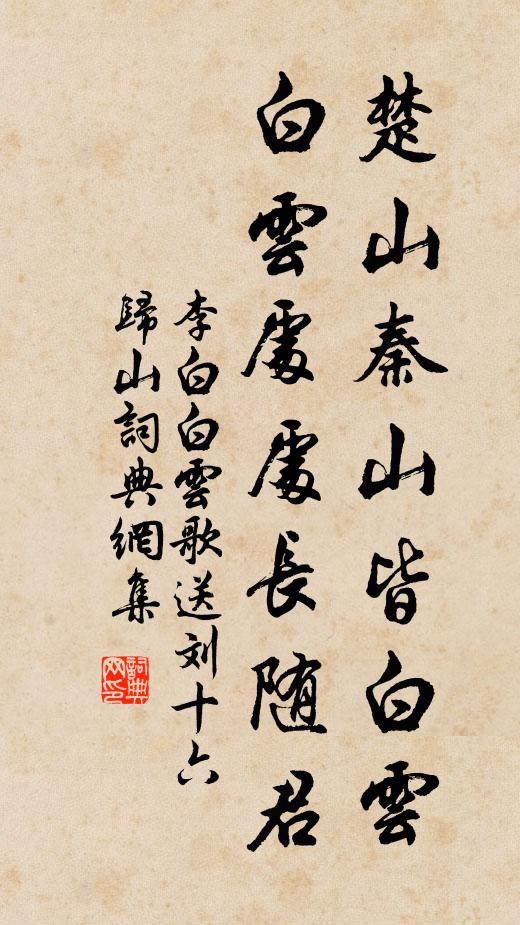 楚山秦山皆白雲
白雲處處長随君
李白白雲歌送刘十六
歸山詞典網集
詞典网印